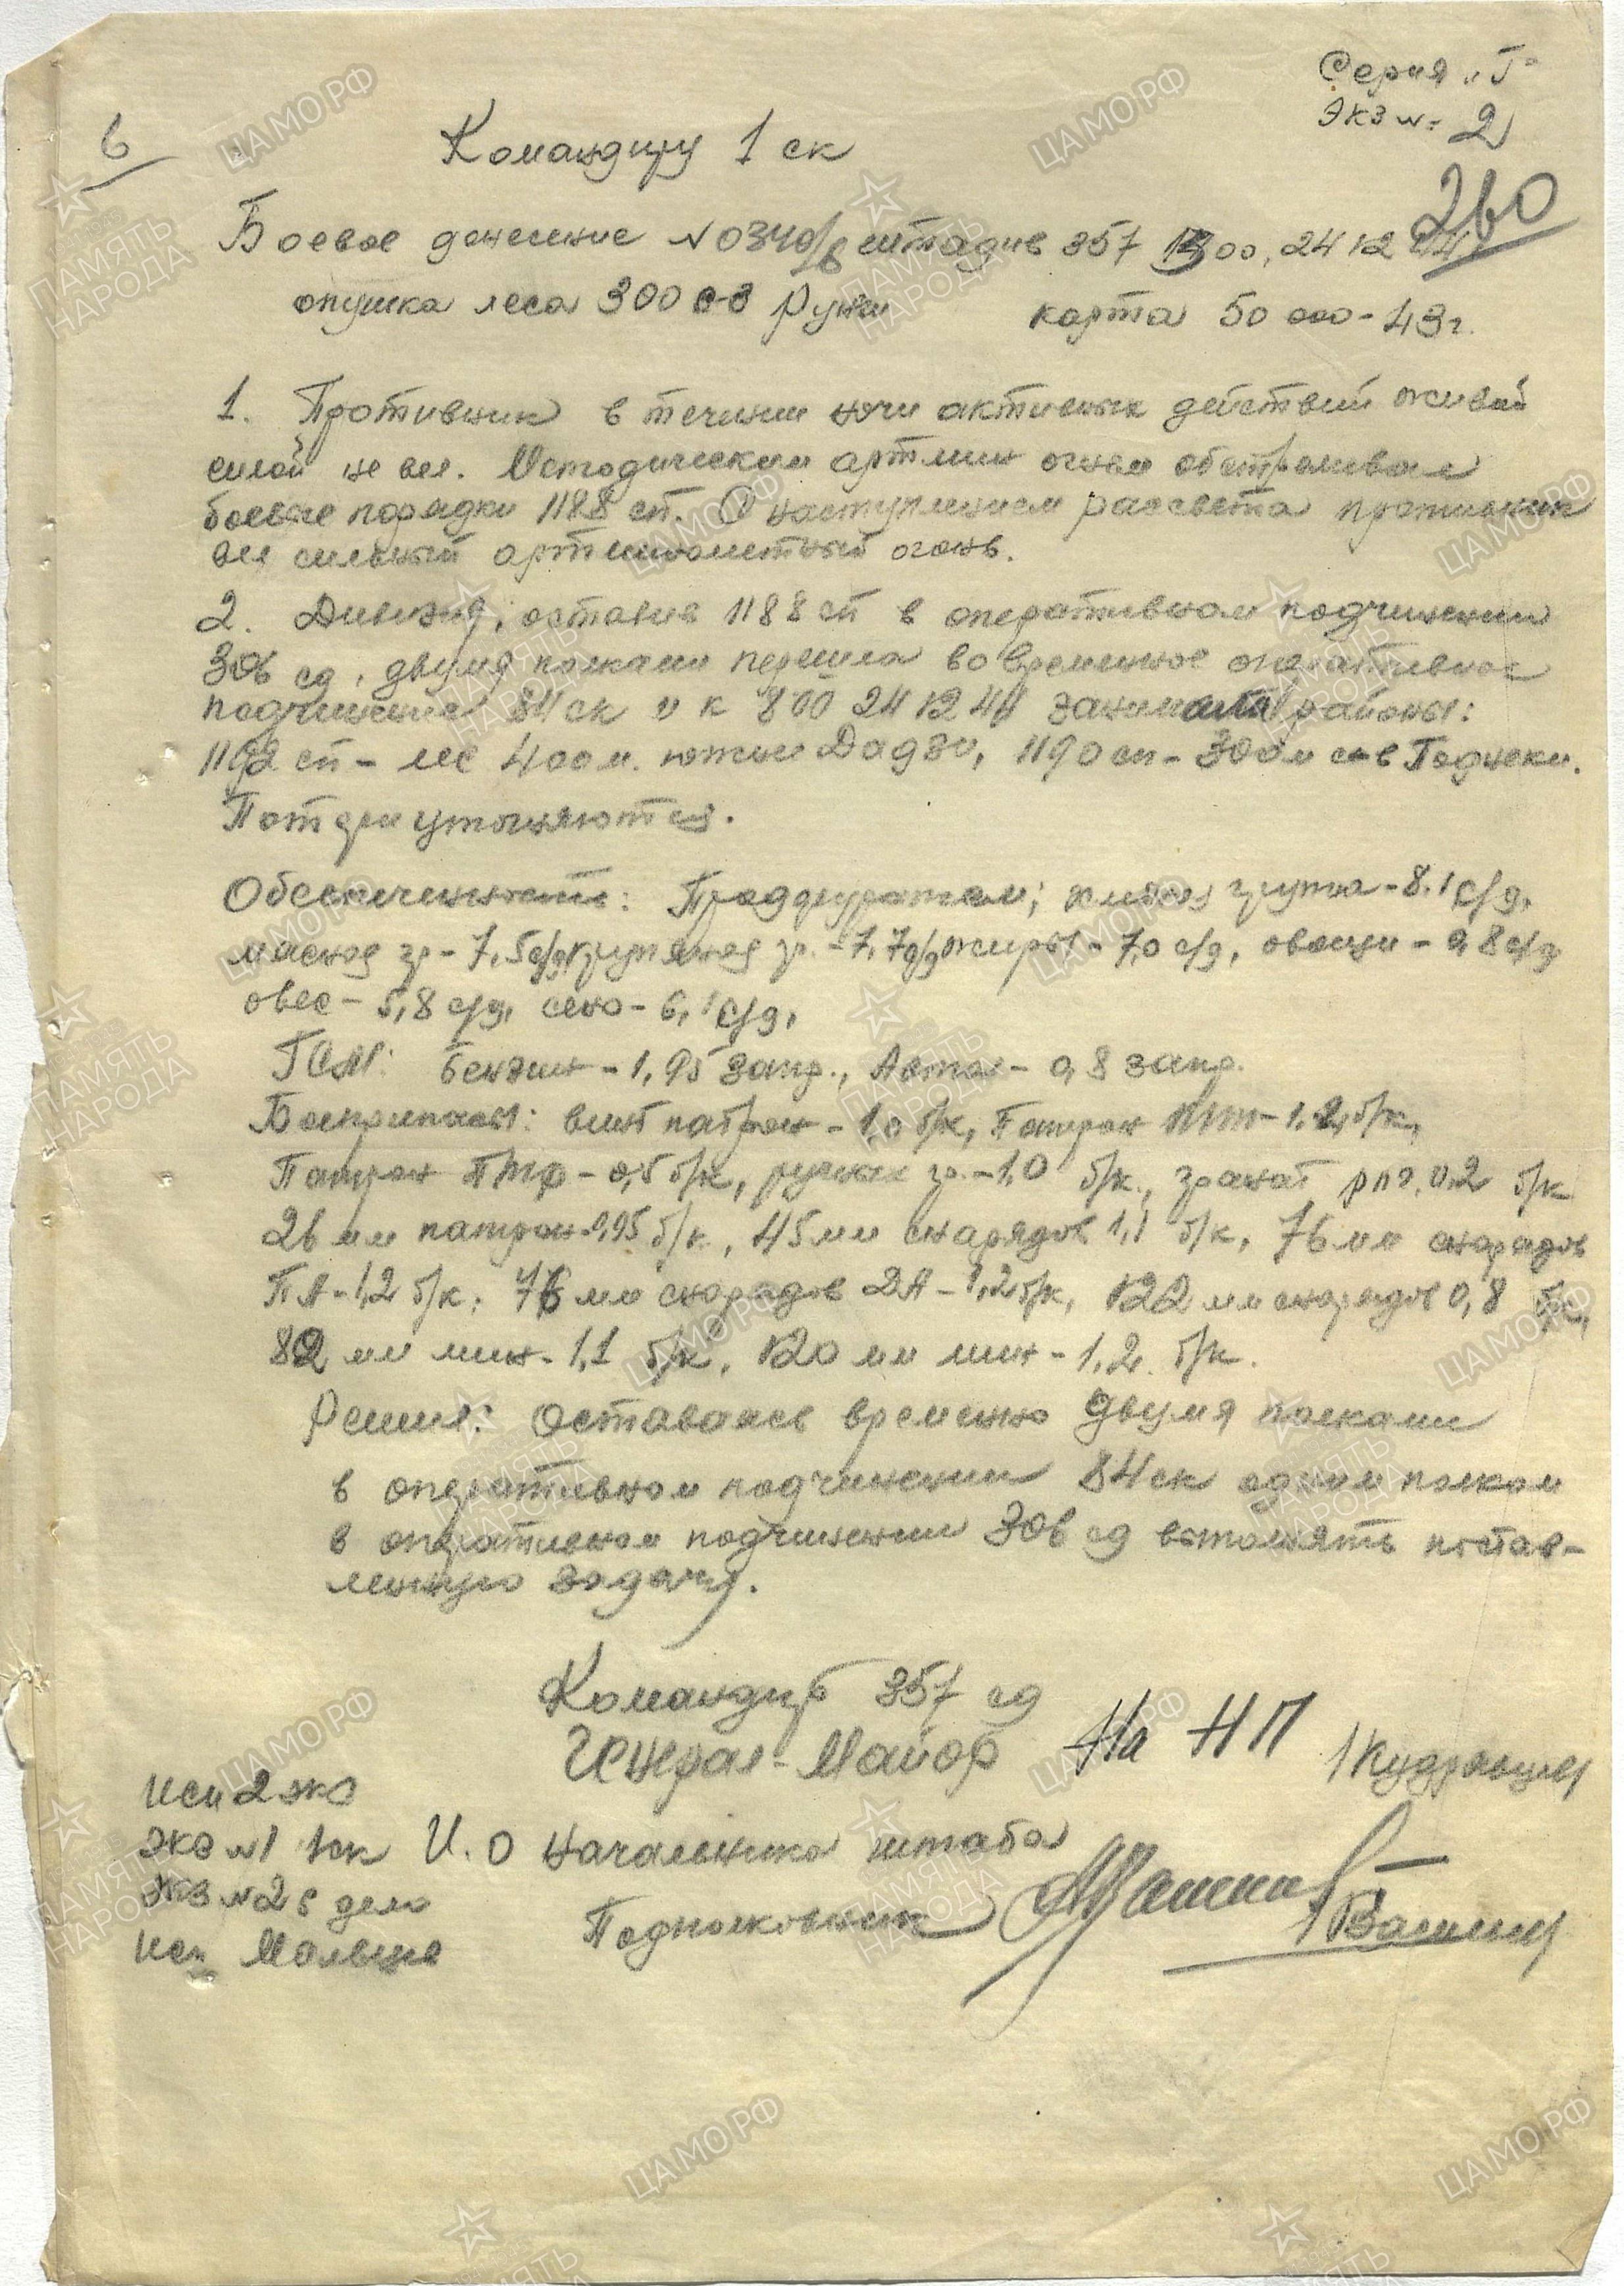 Серия „Г"
Экз № 2
6
Командиру 1 ск
260
Боевое донесение № штадив 357 13 00, 24 12 44
опушка леса 300 с-з Ружи карта 50 000 - 43 г.
1. Противник в течении ночи активных действий живой
силой не вел. Методическим артмин огнем обстреливал
боевые порядки 1188 сп. С наступлением рассвета противник
вел сильный артминометный огонь.
2. Дивизия, оставив 1188 сп в оперативном подчинении
306 сд, двумя полками перешла во временное оперативное
подчинение 84 ск и к 8 00 24 12 44 занимала районы:
1192 сп - лес 400 м. южнее Дадзи, 1190 сп - 300 м с-в Годнеки.
Потери уточняются.
Обеспеченность: Продфуражом; хлебная группа - 8.1 с/д,
мясная гр - 7,5 с/д крупяная гр. - 7,7 с/д жиры - 7,0 с/д, овощи - 0,8 с/д
овес - 5,8 с/д, сено - 6,1 с/д,
ГСМ: Бензин - 1,95 запр., Автол - 0,8 запр.
Боеприпасы: винт патрон - 1,0 б/к, Патрон ТТ - 1.2, б/к,
Патрон ПТР - 0,5 б/к, ручных гр. - 1,0 б/к., гранат рпг. 0,2 б/к
26 мм патрон - 0,95 б/к, 45 мм снарядов 1,1 б/к, 76 мм снарядов
ПА - 1,2 б/к; 76 мм снарядов ДА - 1,2 б/к, 122 мм снарядов 0,8 б/к,
82 мм мин - 1,1 б/к, 120 мм мин - 1,2. б/к.
Решил: Оставаясь временно двумя полками
в оперативном подчинении 84 ск одним полком
в оперативном подчинении 306 сд выполнять постав-
ленную задачу.
Командир 357 сд
Генерал-Майор На НП /Кудрявцев/
Исп 2 экз
экз №1 1ск И. О начальника штаба
экз №2 в дело
Подполковник /Васильев/
Исп Мальцев
ЦАМО.РФ
ПАМЯТЬ НАРОДА